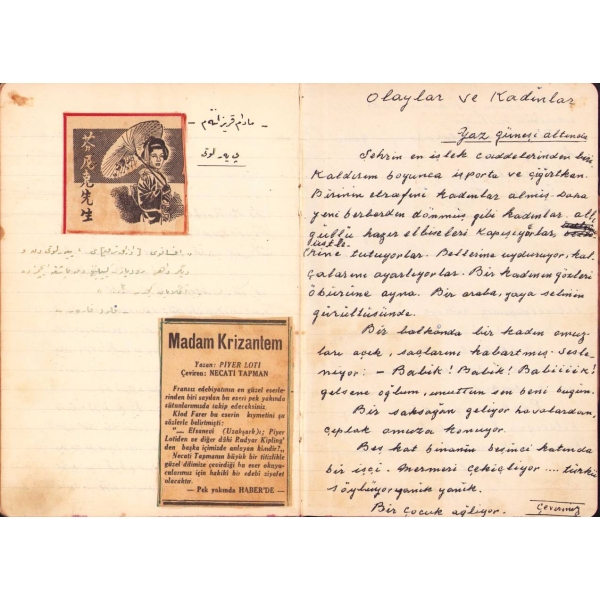 芥尾克先生
- مادام قريزانتم -
پي يه ر لوتى
Madam Krizantem
Yazan: PİYER LOTİ
Çeviren: NECATİ TAPMAN
Fransız edebiyatının en güzel eserle-
rinden biri sayılan bu eseri pek yakında
sütunlarımızda takip edeceksiniz.
Klod Farer bu eserin kıymetini şu
sözlerle belirtmişti:
"— Efsanevî (Uzakşark)ı; Piyer
Lotiden ve diğer dâhi Rudyar Kipling'
den başka içimizde anlayan kimdir?"
Necati Tapmanın büyük bir titizlikle
güzel dilimize çevirdiği bu eser okuyu-
cularımız için hakikî bir edebî ziyafet
olacaktır.
— Pek yakında HABER'DE —
Olaylar ve Kadınlar
Yaz güneşi altında
Şehrin en işlek caddelerinden biri.
Kaldırım boyunca isporta ve çığırtkan.
Birinin etrafını kadınlar almış. Daha
yeni berberden dönmüş gibi kadınlar. allı
güllü hazır elbiseleri kapışıyorlar
üstle-
rine tutuyorlar. Bellerine uyduruyor, kal-
çalarını ayarlıyorlar. Bir kadının gözleri
öbürüne ayna. Bir araba, yaya selinin
gürültüsünde.
Bir balkonda bir kadın omuz-
ları açık, saçlarını kabartmış. Sesle-
niyor: - Babik! Babik! Babiiiik!
gelsene oğlum, unuttun sen beni bugün.
Bir saksağan geliyor havalardan,
çıplak omuza konuyor.
Beş kat binanın beşinci katında
bir işçi. Mermeri çekiçliyor .... türkü
söylüyor yanık yanık.
Bir çocuk ağlıyor.
Çeviriniz